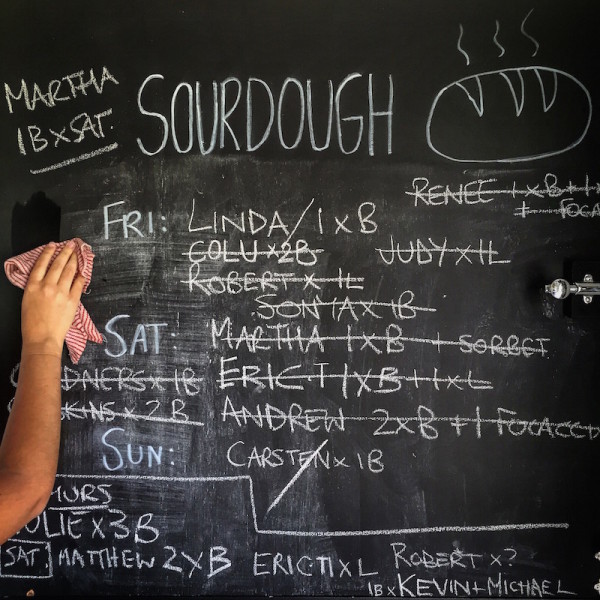 MARTHA
1B x SAT.
SOURDOUGH
RENEE 1 x B + 1 x
+ FOCA
FRI: LINDA/1 x B
COLU x 2B JUDY x 1L
ROBERT x 1L
SONIA x 1B
SAT: MARTHA 1 x B + SORBET
DNERS x 1B ERIC T 1 x B + 1 x L
KINS x 2 B ANDREW 2 x B + 1 FOCACC
SUN: CARSTEN x 1B
HURS
JULIE x 3B
SAT. MATTHEW 2 x B ERIC T 1 x L ROBERT x ?
1B x KEVIN + MICHAEL